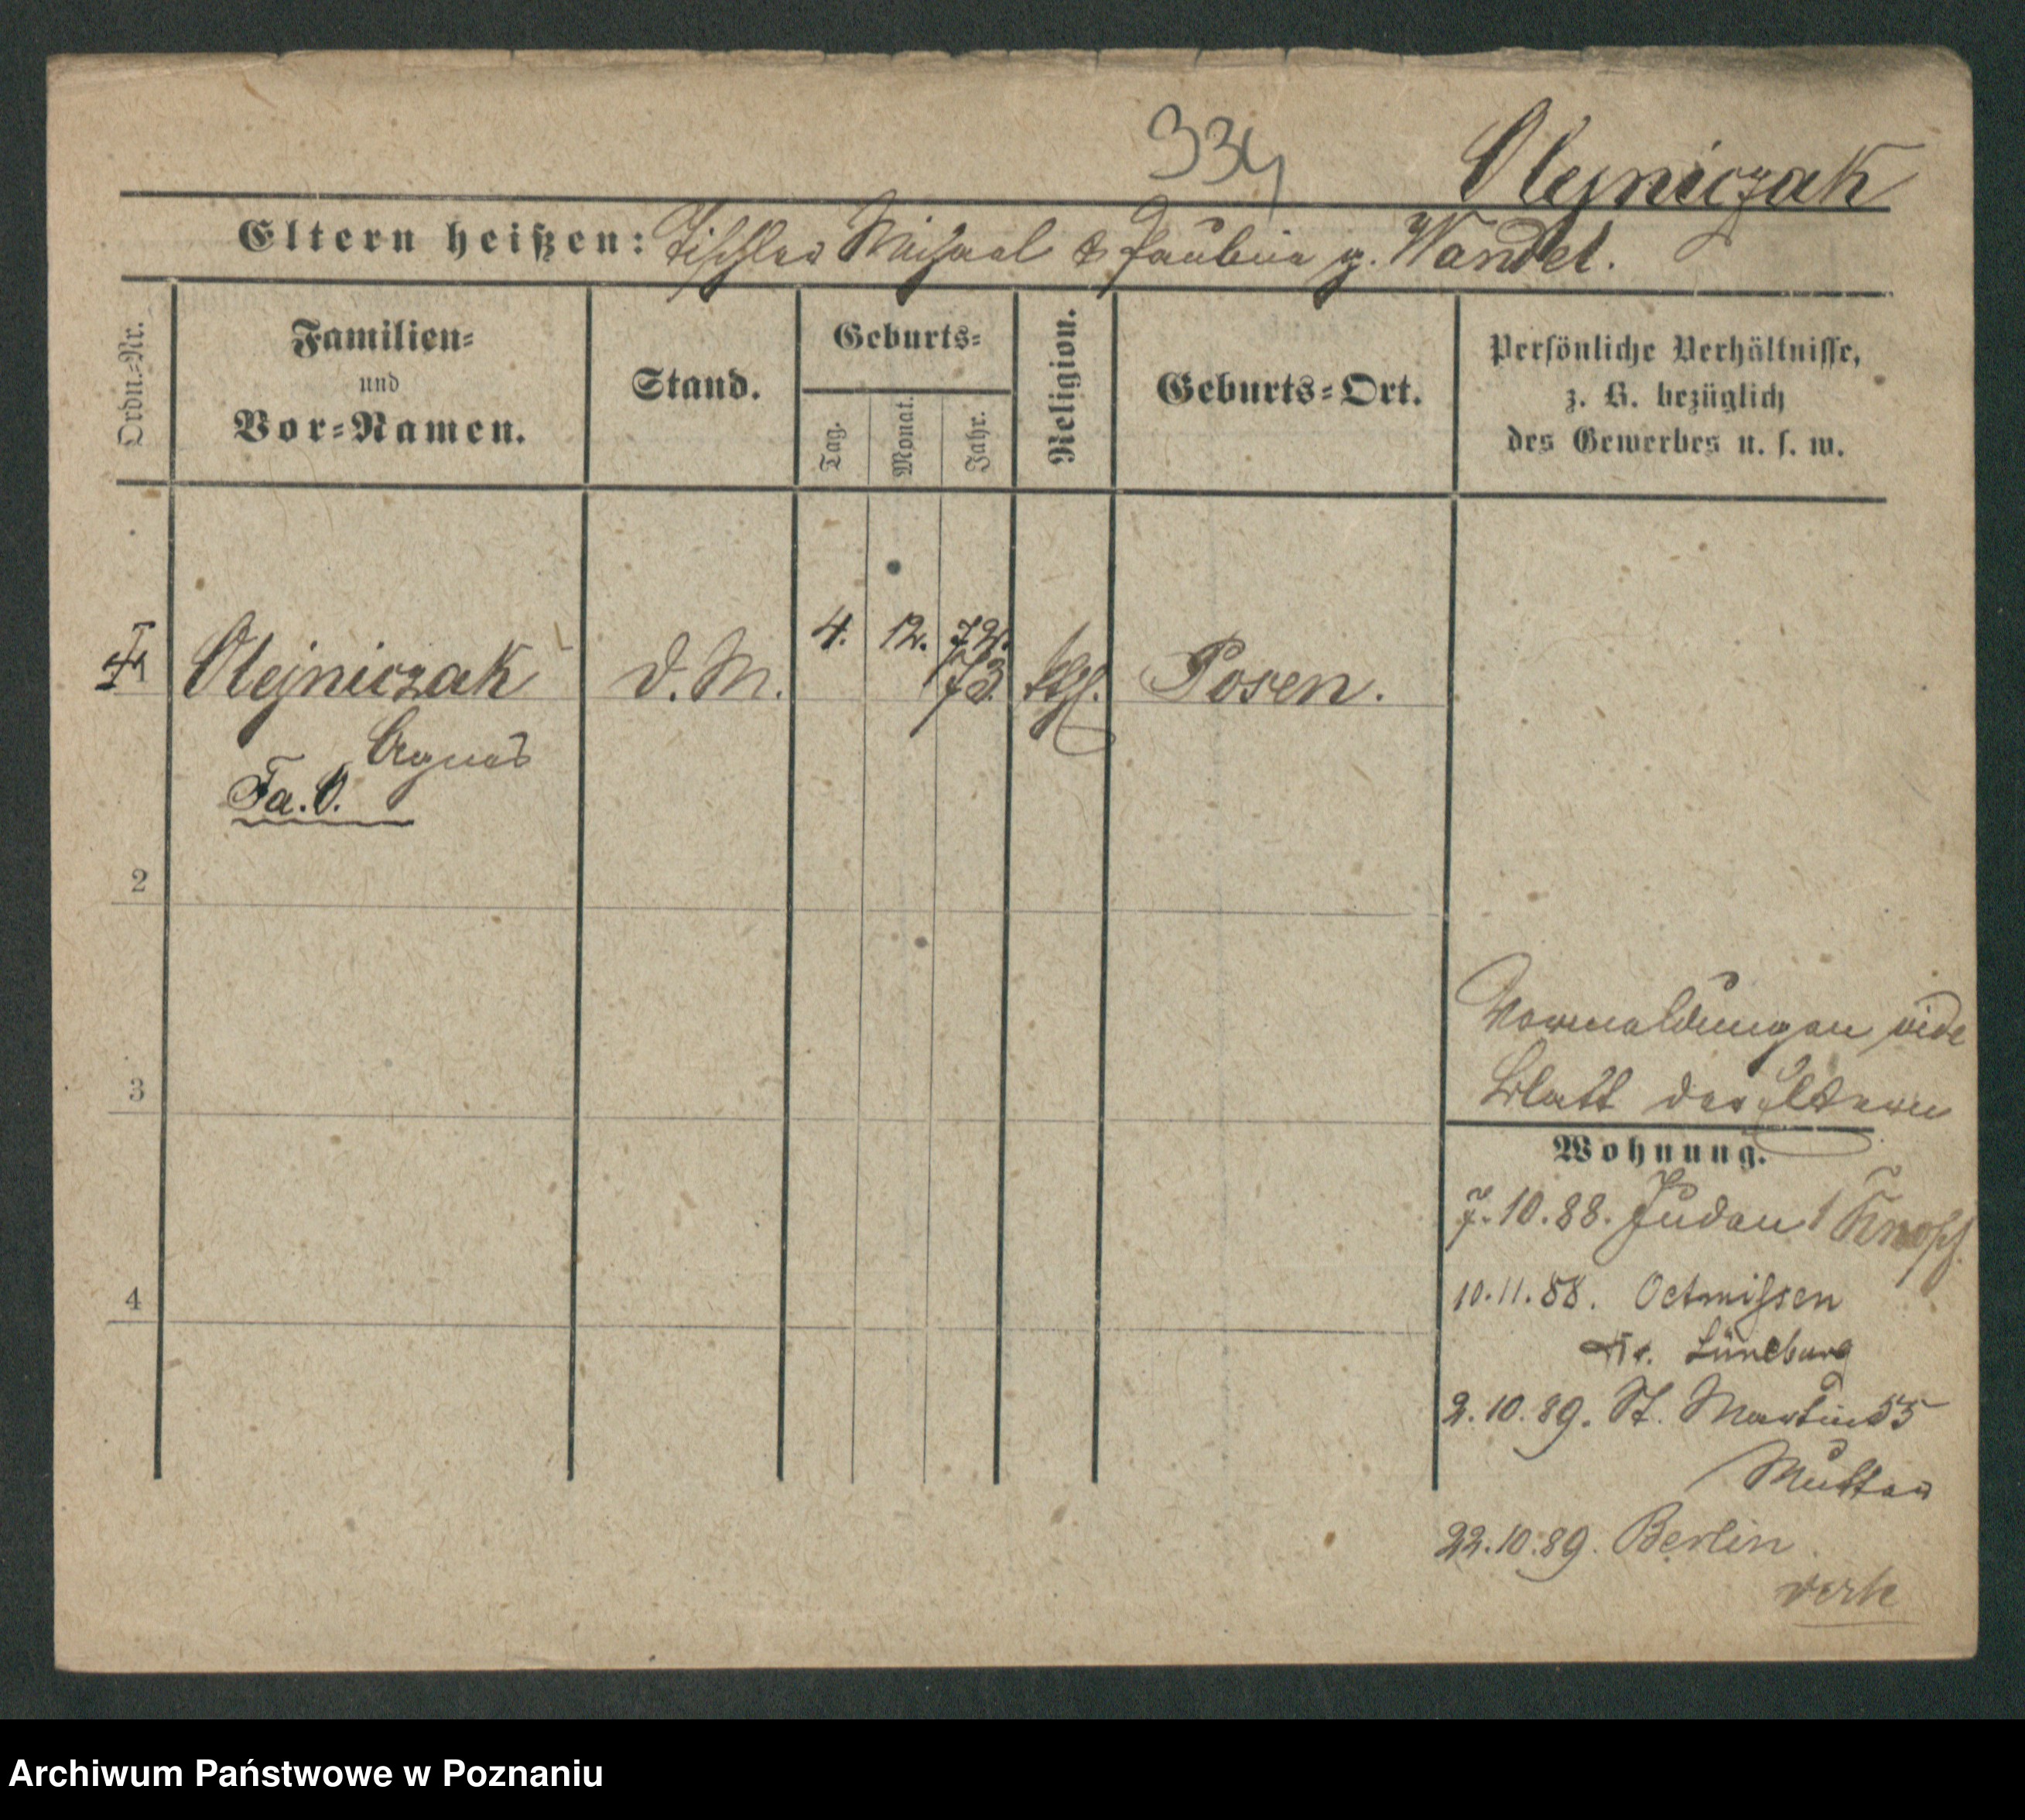 334
Olejniczak
Eltern heißen: Tischler Michael & Paulina g. Wandel.
Ordn.-Nr.
Familien-
und
Vor-Namen.
Stand.
Geburts-
Tag.
Monat.
Jahr.
Religion.
Geburts-Ort.
Persönliche Verhältnisse,
z. B. bezüglich
des Gewerbes u. s. w.
1 Olejniczak D. M. 4. 12. 72. kth. Posen.
73.
Agnes
Fa. O.
2
3
4
Vormeldungen vide
Blatt der Eltern
Wohnung.
7.10.88. Juden 1 Knopf.
10.11.88. Oetmissen
Kr. Lüneburg
2.10.89. St. Martin 55
Mutter
22.10.89. Berlin
Archiwum Państwowe w Poznaniu